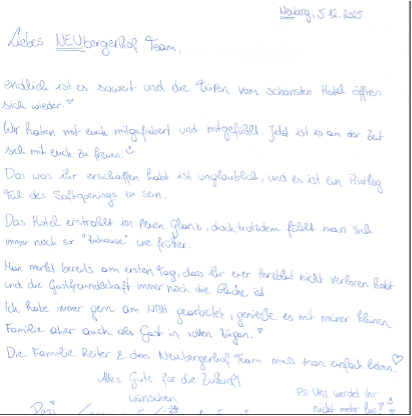 Neuberg, 5.12.2025
Liebes NEUbergerhof Team,
endlich ist es soweit und die Türen vom schönsten Hotel öffnen
sich wieder.
Wir haben mit euch mitgefiebert und mitgefühlt. Jetzt ist es an der Zeit
sich mit euch zu freuen.
Das was ihr erschaffen habt ist unglaublich, und es ist ein Privileg
Teil des Softopenings zu sein.
Das Hotel erstrahlt im Neuen Glanz, doch trotzdem fühlt man sich
immer noch so "zuhause" wie früher.
Man merkt bereits am ersten Tag, dass ihr euer Herzblut nicht verloren habt
und die Gastfreundschaft immer noch die Gleiche ist.
Ich habe immer gern am NBH gearbeitet, genieße es mit meiner kleinen
Familie aber auch als Gast in vollen Zügen.
Die Familie Reiter & das Neubergerhof Team muss man einfach lieben.
Alles Gute für die Zukunft
wünschen
PS Uns werdet ihr
nicht mehr los!